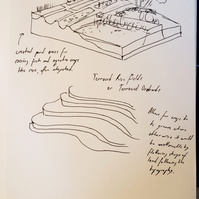 created pond areas for
raising fish and aquatic crops
like rice, often adopted.
Terraced Rice fields
or Terraced Uplands
Allow for crops to
be grown where
otherwise it would
be unattainable by
following shape of
land following the
topography.